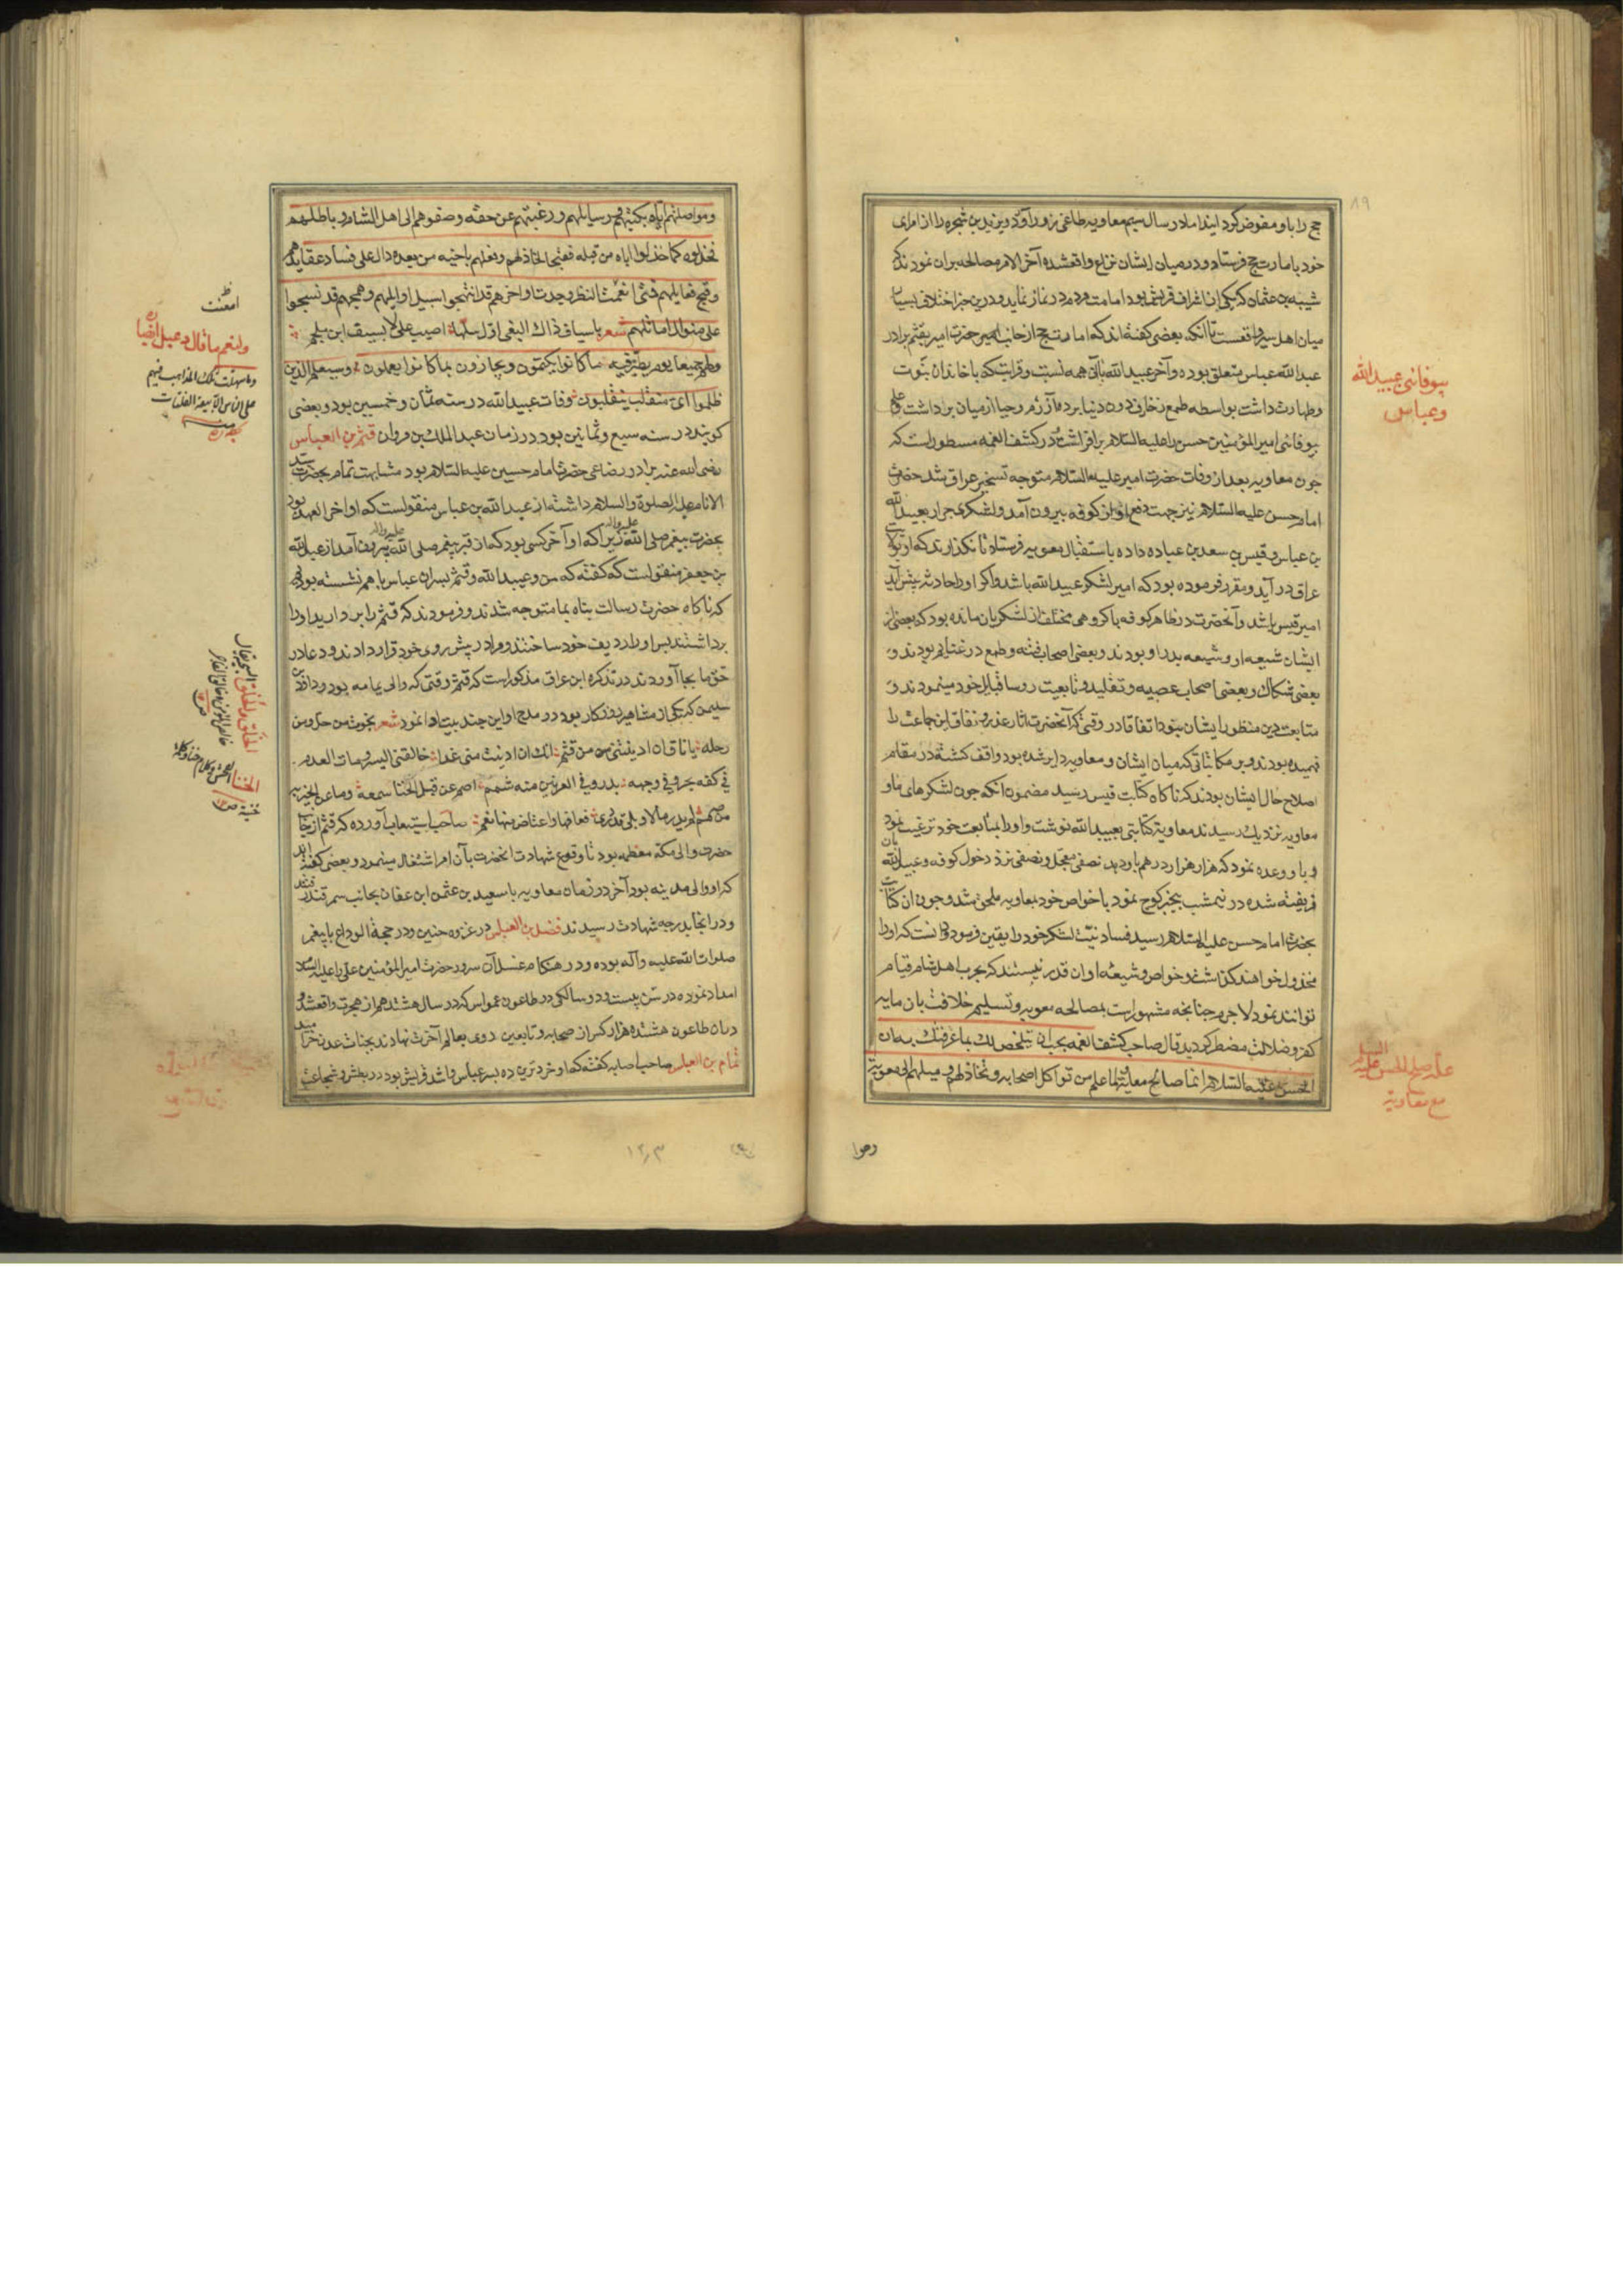 حج را باو مفوض کرد ایند اما در سال سیم معاویه طاغی زور آورد و یزید بن شجره را از امرای
خود بامارت حج فرستاد و در میان ایشان نزاع واقع شده آخر الامر مصالحه بران نمودند که
شیبه بن عثمان که یکی از اشراف قریش بود امامت مردم در نماز نماید و درین خبر اختلاف بسیار
میان اهل سیر واقعست تا آنکه بعضی گفته اند که امارت حج از جانب حضرت امیر بقثم برادر
عبد الله عباس متعلق بوده و آخر عبید الله باآن همه نسبت و قرابت که با خاندان نبوت
و طهارت داشت بواسطه طمع زخارف دون دنیا پرده آزرم و حیا از میان برداشت و علم
بیوفائی امیر المؤمنین حسن را علیه السلام برافراشت و در کشف الغمه مسطور است که
چون معاویه بعد از وفات حضرت امیر علیه السلام متوجه تسخیر عراق شد حضرت
امام حسن علیه السلام نیز جهت دفع او از کوفه بیرون آمد و لشکری جرار بعبید الله
بن عباس و قیس بن سعد بن عباده داده باستقبال معویه فرستاد تا نگذارند که او بولایت
عراق در آید و مقرر فرموده بود که امیر لشکر عبید الله باشد و اگر او را حادثه پیش آید
امیر قیس باشد و آنحضرت در ظاهر کوفه با گروهی مختلف از لشکریان مانده بود که بعضی از
ایشان شیعه او و شیعه پدر او بودند و بعضی اصحاب فتنه و طمع در غنایم بودند و
بعضی شکاک و بعضی اصحاب عصبیه و تقلید و تابعیت روسا قبایل خود مینمودند و
متابعت دین منظور ایشان نبود اتفاقا در وقتی که آنحضرت اثار غدر و نفاق این جماعت را
فهمیده بودند و بر مکاتباتی که میان ایشان و معاویه دایر شده بود واقف گشته در مقام
اصلاح حال ایشان بودند که ناگاه کتابت قیس رسید مضمون انکه چون لشکرهای ما و
معاویه نزدیک رسیدند معاویه کتابتی بعبید الله نوشت و او را بمتابعت خود ترغیب نمود
و باو وعده نمود که هزار هزار درهم باو دهد نصفی معجل و نصفی نزد دخول کوفه و عبید الله بان
فریفته شده در نیمشب بیخبر کوچ نمود با خواص خود بمعاویه ملحق شد و چون ان کتابت
بحضرت امام حسن علیه السلام رسید فساد نیت لشکر خود را یقین فرمود و دانست که او را
مخذول خواهند گذاشت و خواص و شیعه او ان قدر نیستند که بحرب اهل شام قیام
توانند نمود لاجرم چنانچه مشهور است بمصالحه معویه و تسلیم خلافت بان مایه
کفر و ضلالت مضطر گردید قال صاحب کشف الغمه یجب ان یتلخص لك بما عرفتك به ان
الحسن علیه السلام انما صالح معاویة لما علم من تواکل اصحابه و تخاذلهم و میلهم الی معویة
بیوفائی عبید الله
و عباس
علة صلح الحسن علیه السلام
مع معاویة
٨٩
ومواصلتهم ایاه بکتبهم و رسایلهم و رغبتهم عن حقه و صغوهم الی اهل الشام و باطلهم
فخذلوه کما خذلوا اباه من قبله فقبحا لخاذلهم وفعلهم باخیه من بعده دال علی فساد عقایدهم
وقبح فعایلهم فمتی انعمت النظر وجدت اواخرهم قد انتهجوا سبیل اوایلهم وهمجهم قد نسجوا
علی منوال اماثلهم شعر باسیاف ذاك البغی اول سلها اصیب علی لا بسیف ابن ملجم
ولهم جمیعا یوم یظهر فیه ما کانوا یکتمون ویجازون بما کانوا یعملون وسیعلم الذین
ظلموا ای منقلب ینقلبون وفات عبید الله در سنه ثمان و خمسین بود و بعضی
گویند در سنه سبع و ثمانین بود در زمان عبد الملك بن مروان قثم بن العباس
رضی الله عنه برادر رضاعی حضرت امام حسین علیه السلام بود مشابهت تمام بحضرت سید
الانام علیه الصلوة والسلام داشته از عبد الله بن عباس منقولست که او اخر العهد بود
بحضرت پیغمبر صلی الله علیه واله زیرا که او آخر کسی بود که از قبر پیغمبر صلی الله علیه واله بیرون آمد از عبد الله
بن جعفر منقولست که گفته که من و عبید الله و قثم پسران عباس با هم نشسته بودیم
که ناگاه حضرت رسالت پناه بما متوجه شدند و فرمودند که قثم را بردارید او را
برداشتند پس او را ردیف خود ساختند و مرا در پیش روی خود قرار دادند و دعا در
حق ما بجا آوردند در تذکره ابن عراق مذکور است که قثم وقتی که والی یمامه بود و داود بن
سلیمن که یکی از مشاهیر روزگار بود در مدح او این چند بیت ادا نمود شعر نجوت من حل ومن
رحله یا ناق ان ادنیتنی من قثم انك ان ادنیت منی غدا حالفنی الیسر ومات العدم
فی کفه بحر وفی وجهه بدر وفی العرنین منه شمم اصم عن قیل الخنا سمعه وما عن الخیر به
من صمم لم یدر ما لا وبلی قد دری فعافها واعتاض منها نعم صاحب استیعاب آورده که قثم از جانب
حضرت والی مکه معظمه بود تا وقوع شهادت انحضرت بآن امر اشتغال مینمود و بعضی گفته اند
که او والی مدینه بود آخر در زمان معاویه با سعید بن عثمن ابن عفان بجانب سمرقند رفتند
و در انجا بدرجه شهادت رسیدند فضل بن العباس در غزوه حنین و در حجة الوداع با پیغمبر
صلوات الله علیه وآله بوده و در هنگام غسل آن سرور حضرت امیر المؤمنین علی را علیه السلام
امداد نموده در سن بیست و دو سالگی در طاعون عمواس که در سال هشتدهم از هجرت واقع شد و
دران طاعون هشتده هزار کس از صحابه و تابعین روی بعالم آخرت نهادند بجنات عدن خرامید
تمام بن العباس صاحب اصابه گفته که او خردترین ده پسر عباس و اشد قریش بود در بطش و شجاعت
امعنت
ولنعم ما قال دعبل
وما سهلت تلك المذاهب فیهم
علی الناس الا بیعة الفلتات
رصوا